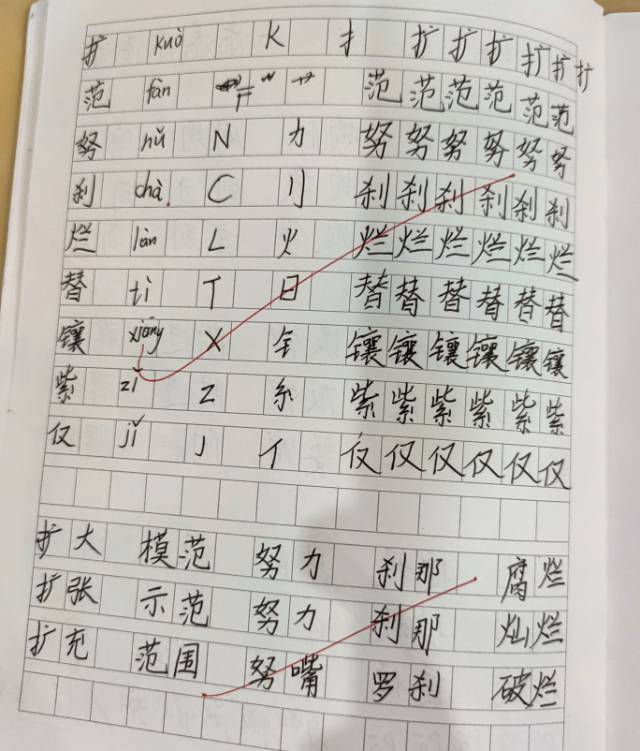 扩 kuò K 扌 扩 扩 扩 扩 扩 扩
范 fàn F 艹 范 范 范 范 范 范
努 nǔ N 力 努 努 努 努 努 努
刹 chà C 刂 刹 刹 刹 刹 刹 刹
烂 làn L 火 烂 烂 烂 烂 烂 烂
替 tì T 日 替 替 替 替 替 替
镶 xiāng X 钅 镶 镶 镶 镶 镶 镶
紫 zǐ Z 糸 紫 紫 紫 紫 紫 紫
仅 jǐ J 亻 仅 仅 仅 仅 仅 仅
扩大 模范 努力 刹那 腐烂
扩张 示范 努力 刹那 灿烂
扩充 范围 努嘴 罗刹 破烂